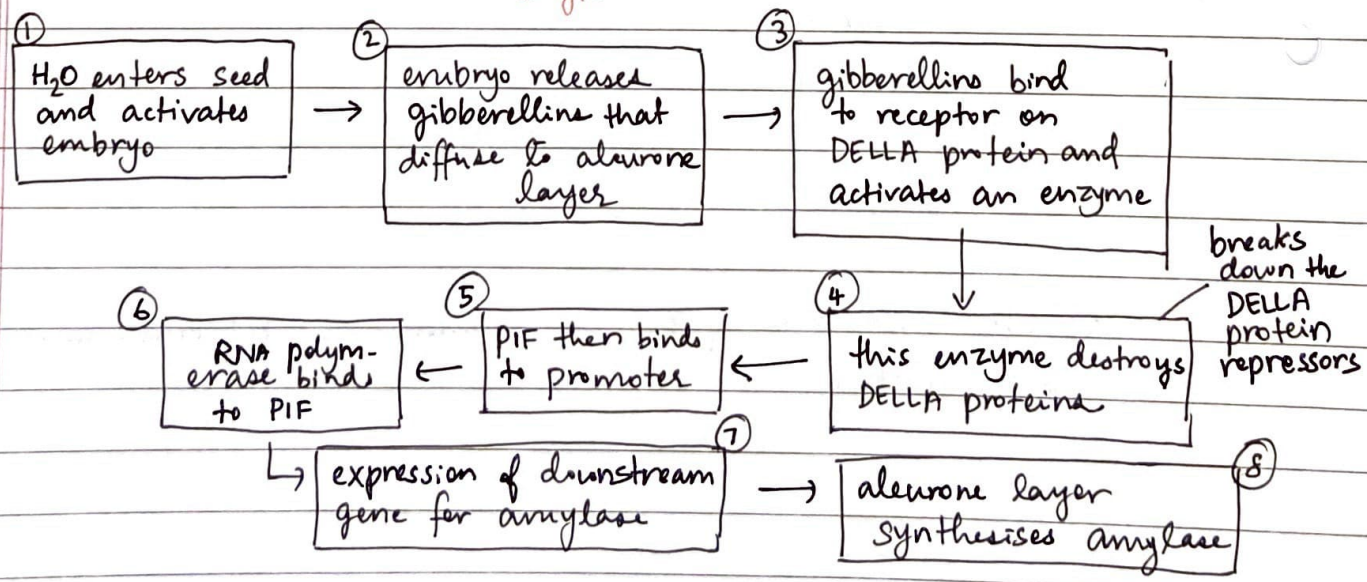 ①
H₂O enters seed
and activates
embryo
②
embryo releases
gibberellins that
diffuse to aleurone
layer
③
gibberellins bind
to receptor on
DELLA protein and
activates an enzyme
④
this enzyme destroys
DELLA proteins
breaks
down the
DELLA
protein
repressors
⑤
PIF then binds
to promoter
⑥
RNA polym-
erase binds
to PIF
⑦
expression of downstream
gene for amylase
⑧
aleurone layer
synthesises amylase